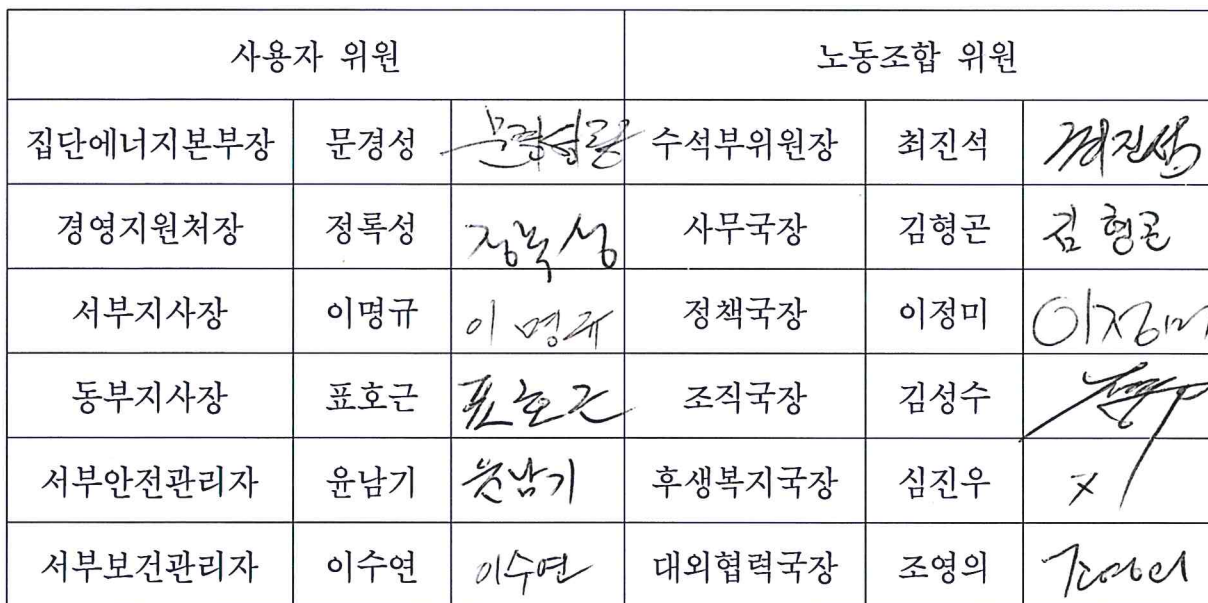 사용자 위원 노동조합 위원
집단에너지본부장 문경성 수석부위원장 최진석 최진석
경영지원처장 정록성 정록성 사무국장 김형곤 김형곤
서부지사장 이명규 이명규 정책국장 이정미 이정미
동부지사장 표호근 표호근 조직국장 김성수
서부안전관리자 윤남기 윤남기 후생복지국장 심진우 X
서부보건관리자 이수연 이수연 대외협력국장 조영의 조영의